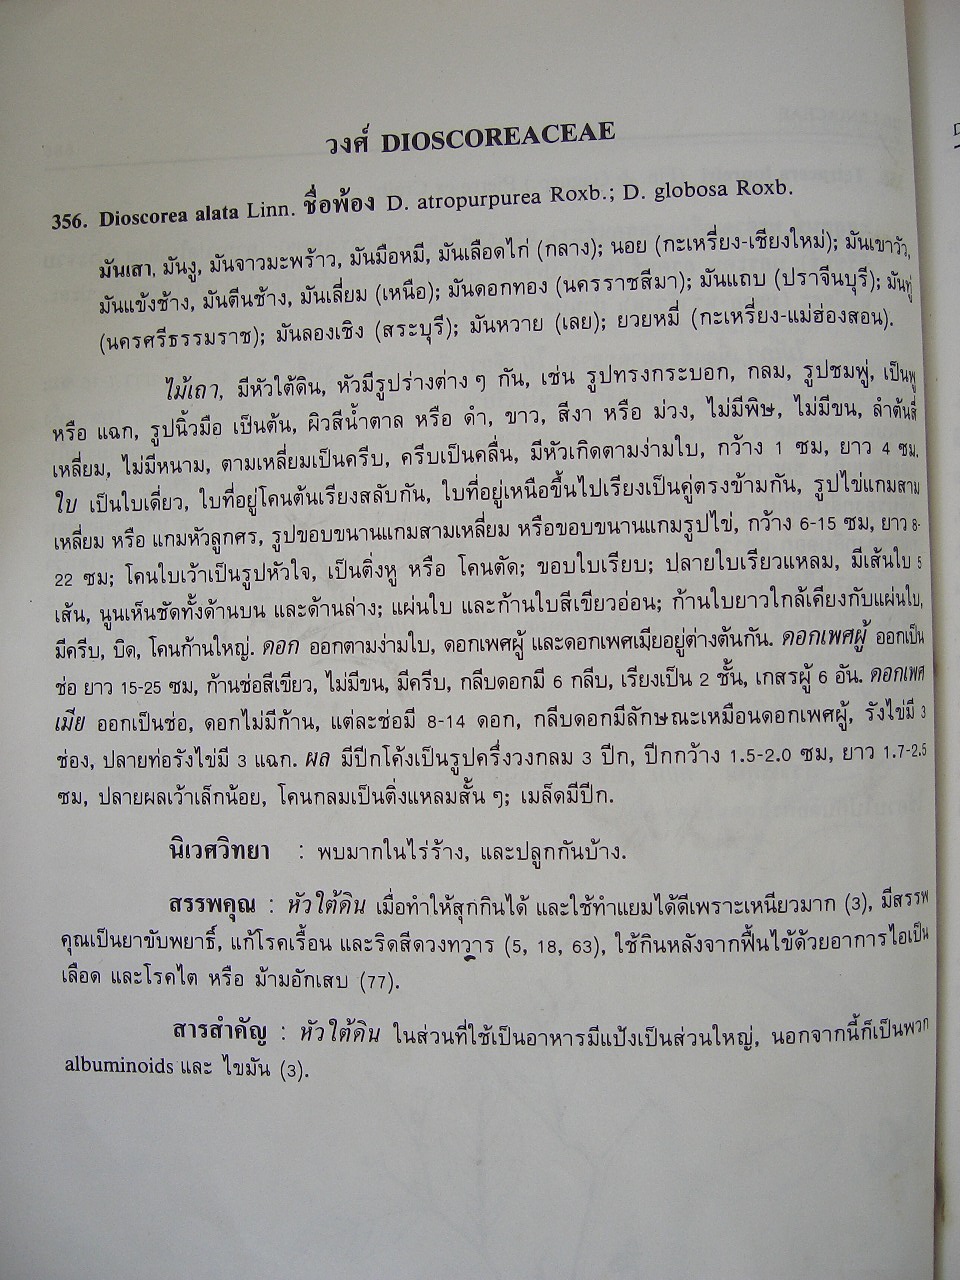 วงศ์ DIOSCOREACEAE
356. Dioscorea alata Linn. ชื่อพ้อง D. atropurpurea Roxb.; D. globosa Roxb.
มันเสา, มันงู, มันจาวมะพร้าว, มันมือหมี, มันเลือดไก่ (กลาง); นอย (กะเหรี่ยง-เชียงใหม่); มันเขาวัว,
มันแข้งช้าง, มันตีนช้าง, มันเลี่ยม (เหนือ); มันดอกทอง (นครราชสีมา); มันแถบ (ปราจีนบุรี); มันทู่
(นครศรีธรรมราช); มันลองเชิง (สระบุรี); มันหวาย (เลย); ยวยหมี่ (กะเหรี่ยง-แม่ฮ่องสอน).
ไม้เถา, มีหัวใต้ดิน, หัวมีรูปร่างต่าง ๆ กัน, เช่น รูปทรงกระบอก, กลม, รูปชมพู่, เป็นพู
หรือ แฉก, รูปนิ้วมือ เป็นต้น, ผิวสีน้ำตาล หรือ ดำ, ขาว, สีงา หรือ ม่วง, ไม่มีพิษ, ไม่มีขน, ลำต้นสี่
เหลี่ยม, ไม่มีหนาม, ตามเหลี่ยมเป็นครีบ, ครีบเป็นคลื่น, มีหัวเกิดตามง่ามใบ, กว้าง 1 ซม, ยาว 4 ซม.
ใบ เป็นใบเดี่ยว, ใบที่อยู่โคนต้นเรียงสลับกัน, ใบที่อยู่เหนือขึ้นไปเรียงเป็นคู่ตรงข้ามกัน, รูปไข่แกมสาม
เหลี่ยม หรือ แกมหัวลูกศร, รูปขอบขนานแกมสามเหลี่ยม หรือขอบขนานแกมรูปไข่, กว้าง 6-15 ซม, ยาว 8-
22 ซม; โคนใบเว้าเป็นรูปหัวใจ, เป็นติ่งหู หรือ โคนตัด; ขอบใบเรียบ; ปลายใบเรียวแหลม, มีเส้นใบ 5
เส้น, นูนเห็นชัดทั้งด้านบน และด้านล่าง; แผ่นใบ และก้านใบสีเขียวอ่อน; ก้านใบยาวใกล้เคียงกับแผ่นใบ,
มีครีบ, บิด, โคนก้านใหญ่. ดอก ออกตามง่ามใบ, ดอกเพศผู้ และดอกเพศเมียอยู่ต่างต้นกัน. ดอกเพศผู้ ออกเป็น
ช่อ ยาว 15-25 ซม, ก้านช่อสีเขียว, ไม่มีขน, มีครีบ, กลีบดอกมี 6 กลีบ, เรียงเป็น 2 ชั้น, เกสรผู้ 6 อัน. ดอกเพศ
เมีย ออกเป็นช่อ, ดอกไม่มีก้าน, แต่ละช่อมี 8-14 ดอก, กลีบดอกมีลักษณะเหมือนดอกเพศผู้, รังไข่มี 3
ช่อง, ปลายท่อรังไข่มี 3 แฉก. ผล มีปีกโค้งเป็นรูปครึ่งวงกลม 3 ปีก, ปีกกว้าง 1.5-2.0 ซม, ยาว 1.7-2.5
ซม, ปลายผลเว้าเล็กน้อย, โคนกลมเป็นติ่งแหลมสั้น ๆ; เมล็ดมีปีก.
นิเวศวิทยา : พบมากในไร่ร้าง, และปลูกกันบ้าง.
สรรพคุณ : หัวใต้ดิน เมื่อทำให้สุกกินได้ และใช้ทำแยมได้ดีเพราะเหนียวมาก (3), มีสรรพ
คุณเป็นยาขับพยาธิ์, แก้โรคเรื้อน และริดสีดวงทวาร (5, 18, 63), ใช้กินหลังจากฟื้นไข้ด้วยอาการไอเป็น
เลือด และโรคไต หรือ ม้ามอักเสบ (77).
สารสำคัญ : หัวใต้ดิน ในส่วนที่ใช้เป็นอาหารมีแป้งเป็นส่วนใหญ่, นอกจากนี้ก็เป็นพวก
albuminoids และ ไขมัน (3).